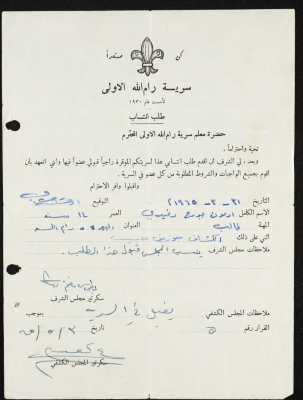 كن مستعداً
سرية رام الله الاولى
تأسست عام ١٩٣٠
طلب انتساب
حضرة معلم سرية رام الله الاولى المحترم
تحية واحتراماً ،
وبعد ، لي الشرف ان اقدم طلب انتسابي هذا لسريتكم الموقرة راجياً قبولي عضواً فيها واني اتعهد بان
اقوم بجميع الواجبات والشروط المطلوبة من كل عضو في السرية .
واقبلوا وافر الاحترام
التاريخ ٢١-٣-١٩٦٥ التوقيع
الاسم الكامل جورج العمر ١٤ سنة
المهنة طالب العنوان رام الله
اثنى على ذلك الكشاف
ملاحظات مجلس الشرف ينسب المجلس قبول هذا الطلب.
سكرتير مجلس الشرف
ملاحظات المجلس الكشفي يقبل في السرية بموجب
القرار رقم ٥ تاريخ
سكرتير المجلس الكشفي